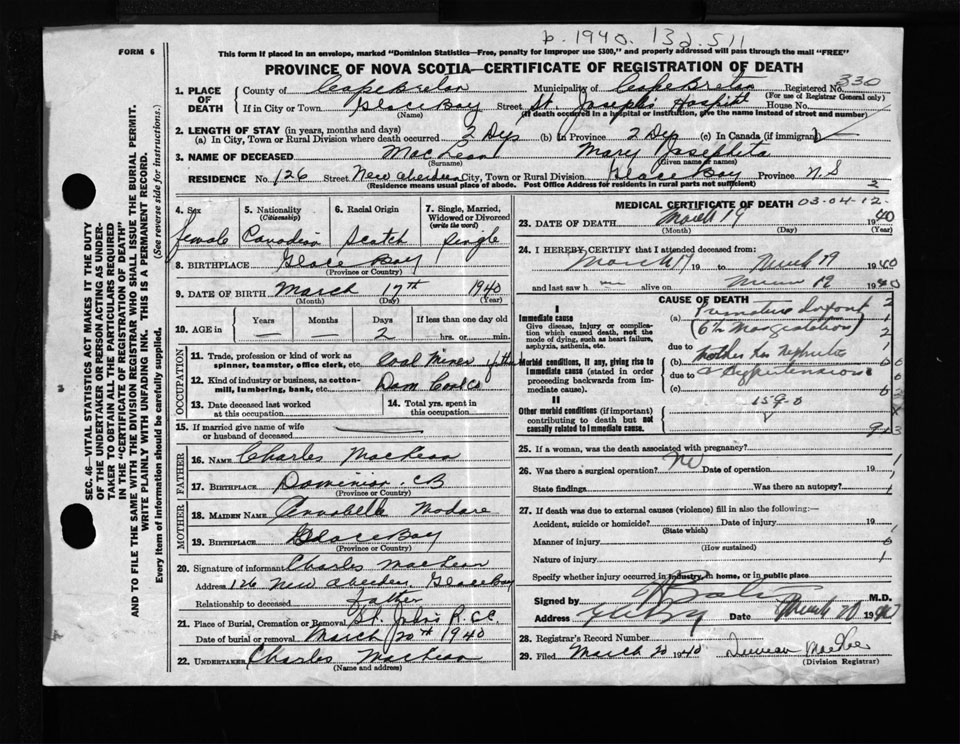 p. 1940. 132.511
FORM 6
This form if placed in an envelope, marked "Dominion Statistics—Free, penalty for improper use $300," and properly addressed will pass through the mail "FREE"
PROVINCE OF NOVA SCOTIA—CERTIFICATE OF REGISTRATION OF DEATH
SEC. 46—VITAL STATISTICS ACT MAKES IT THE DUTY
OF THE UNDERTAKER OR PERSON ACTING AS UNDER-
TAKER TO OBTAIN ALL THE PARTICULARS REQUIRED
IN THE "CERTIFICATE OF REGISTRATION OF DEATH"
AND TO FILE THE SAME WITH THE DIVISION REGISTRAR WHO SHALL ISSUE THE BURIAL PERMIT.
WRITE PLAINLY WITH UNFADING INK. THIS IS A PERMANENT RECORD.
Every item of information should be carefully supplied. (See reverse side for instructions.)
1. PLACE OF DEATH County of Cape Breton Municipality of Cape Breton Registered No. 330
(For use of Registrar General only)
If in City or Town Glace Bay Street St. Josephs Hospital House No.
(Name) (If death occurred in a hospital or institution, give the name instead of street and number)
2. LENGTH OF STAY (in years, months and days)
(a) In City, Town or Rural Division where death occurred 2 Dys (b) In Province 2 Dys (c) In Canada (if immigrant)
3. NAME OF DECEASED MacLean Mary Josephita
(Surname) (Given name or names)
RESIDENCE No. 126 Street New Aberdeen City, Town or Rural Division Glace Bay Province N.S
(Residence means usual place of abode. Post Office Address for residents in rural parts not sufficient) 2
4. Sex 5. Nationality (Citizenship) 6. Racial Origin 7. Single, Married, Widowed or Divorced (write the word)
female Canadian Scotch Single
8. BIRTHPLACE Glace Bay
(Province or Country)
9. DATE OF BIRTH March 17th 1940
(Month) (Day) (Year)
10. AGE in Years Months Days If less than one day old
— — 2 hrs. or min.
OCCUPATION
11. Trade, profession or kind of work as spinner, teamster, office clerk, etc. Coal Miner
12. Kind of industry or business, as cotton-mill, lumbering, bank, etc. Dom Coal Co
13. Date deceased last worked at this occupation
14. Total yrs. spent in this occupation
15. If married give name of wife or husband of deceased
FATHER
16. Name Charles MacLean
17. Birthplace Dominion. CB
(Province or Country)
MOTHER
18. Maiden Name Annabelle
19. Birthplace Glace Bay
(Province or Country)
20. Signature of informant Charles MacLean
Address 126 New Aberdeen, Glace Bay
Relationship to deceased father
21. Place of Burial, Cremation or Removal St. John's R.C.C.
Date of burial or removal March 20th 1940
22. Undertaker Charles MacLean
(Name and address)
MEDICAL CERTIFICATE OF DEATH 03-04-12-
23. DATE OF DEATH March 19 1940
(Month) (Day) (Year)
24. I HEREBY CERTIFY that I attended deceased from:
March 17 19 to March 19 1940
and last saw h alive on March 19 1940
CAUSE OF DEATH
I
Immediate cause
Give disease, injury or complication which caused death, not the mode of dying, such as heart failure, asphyxia, asthenia, etc.
(a) Premature Infant
(6th Mos gestation)
due to
Morbid conditions, if any, giving rise to immediate cause (stated in order proceeding backwards from immediate cause).
(b) Mother has Nephritis
due to & Hypertension
(c)
159-0
II
Other morbid conditions (if important) contributing to death but not causally related to immediate cause.
25. If a woman, was the death associated with pregnancy?
26. Was there a surgical operation? No Date of operation 19
State findings Was there an autopsy?
27. If death was due to external causes (violence) fill in also the following:—
Accident, suicide or homicide? Date of injury 19
(State which)
Manner of injury
(How sustained)
Nature of injury
Specify whether injury occurred in industry, in home, or in public place
Signed by M.D.
Address Date March 20 1940
28. Registrar's Record Number
29. Filed March 20 1940 Duncan
(Division Registrar)